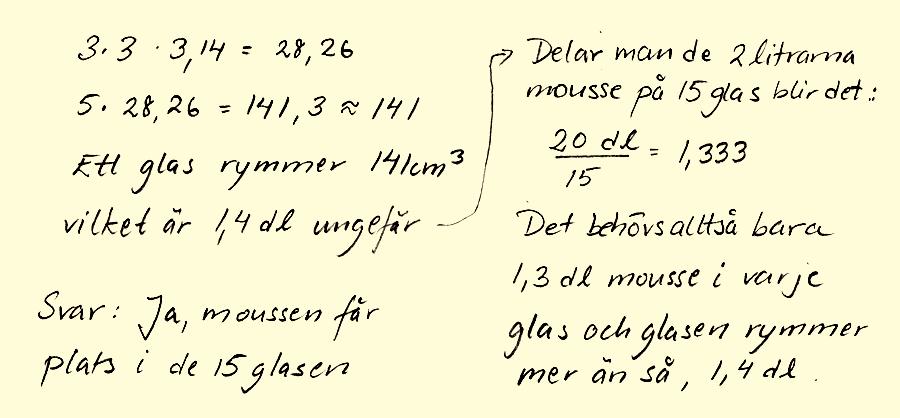 3·3·3,14 = 28,26
5·28,26 = 141,3 ≈ 141
Ett glas rymmer 141cm³
vilket är 1,4 dl ungefär
Delar man de 2 litrarna
mousse på 15 glas blir det:
20 dl
15
= 1,333
Det behövs alltså bara
1,3 dl mousse i varje
glas och glasen rymmer
mer än så, 1,4 dl.
Svar: Ja, moussen får
plats i de 15 glasen